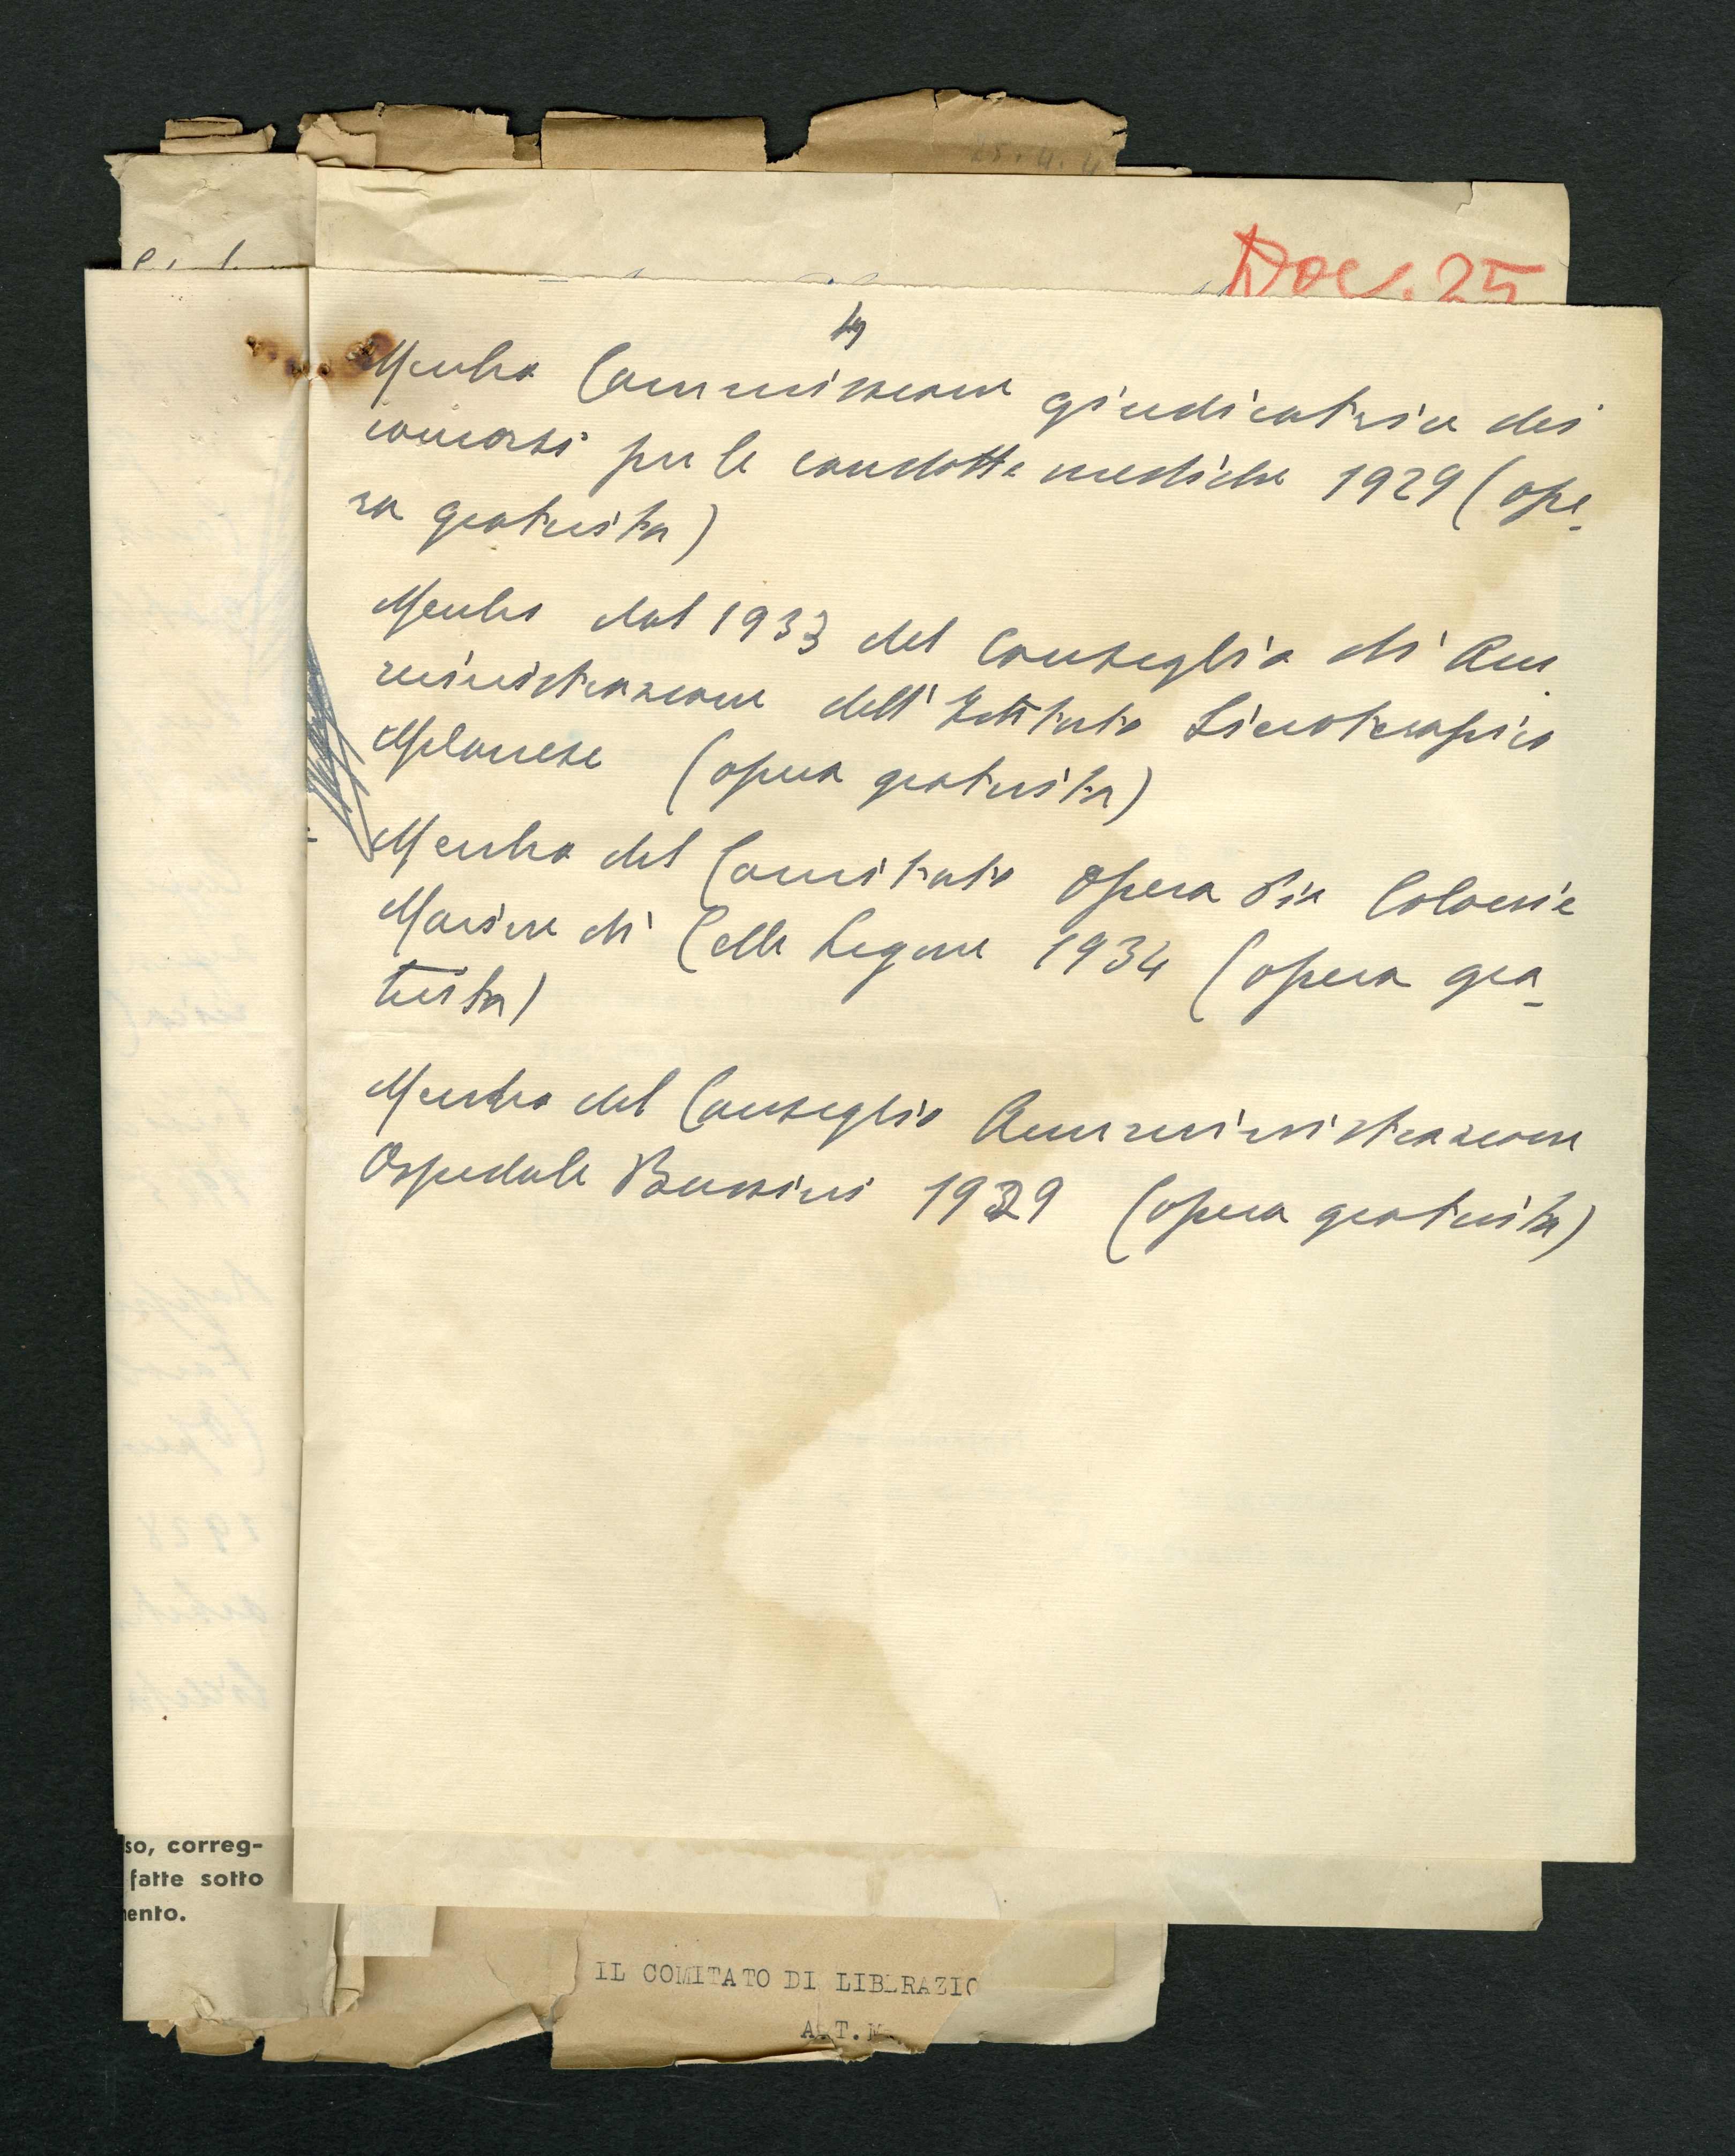 Doc. 25
4
Membro Commissione giudicatrice dei
concorsi per le condotte mediche 1929 (ope-
ra gratuita)
Membro dal 1933 del Consiglio di Am
ministrazione dell'Istituto Sieroterapico
Milanese (opera gratuita)
Membro del Comitato Opera Pia Colonie
Marine di Celle Ligure 1934 (opera gra-
tuita)
Membro del Consiglio Amministrazione
Ospedale Bassini 1929 (opera gratuita)
so, correg-
fatte sotto
mento.
IL COMITATO DI LIBERAZIO